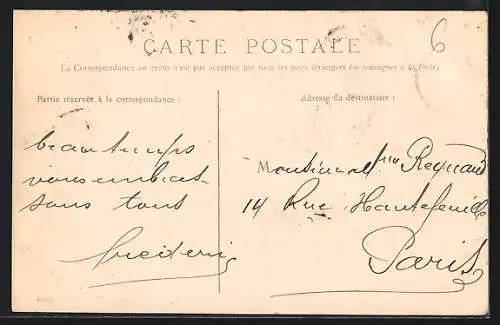 6
CARTE POSTALE
La Correspondance au recto n'est pas acceptée par tous les pays étrangers (se renseigner à la Poste)
Partie réservée à la correspondance :
Adresse du destinataire :
beau temps
vous embras-
sons tous
M
Regnard
14 Rue Hautefeuille
Paris